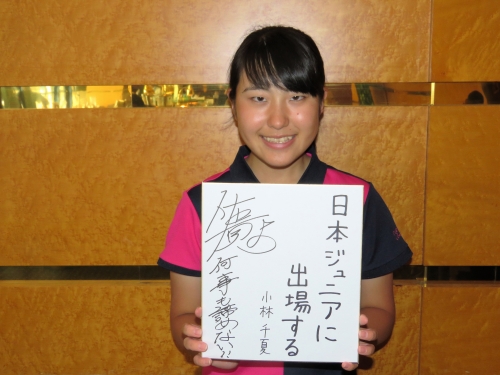 日本ジュニアに
出場する
小林 千夏
何事も諦めない!!